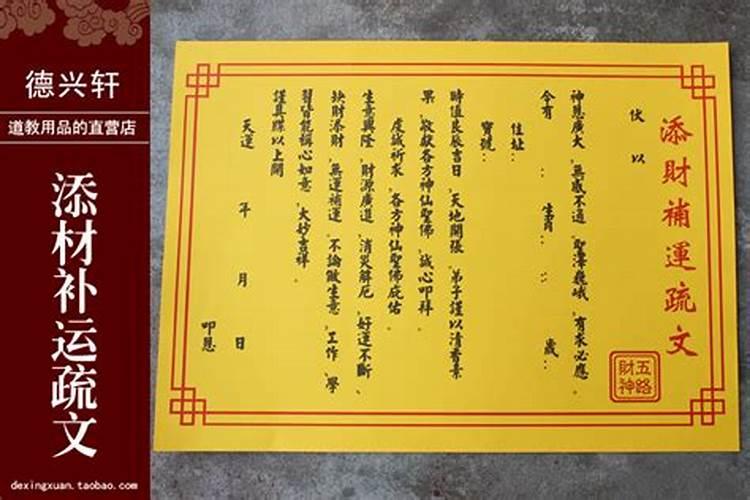 德兴轩
道教用品的直营店
添材补运疏文
dexingxuan.taobao.com
添財補運疏文
五路
財神
伏以
神恩廣大、無感不通、聖澤巍峨、有求必應。
今有 : 生肖 : : 歲、
住址:
寶號:
時值良辰吉日、天地開張、弟子謹以清香素
果、敬獻各方神仙聖佛、誠心叩拜
虔誠祈求、各方神仙聖佛庇佑
生意興隆、財源廣進、消災解厄、好運不斷、
缺財添財、無運補運、不論做生意、工作、學
習皆能稱心如意、大妙吉祥。
謹具疏以上聞
天運 年 月 日 叩恩